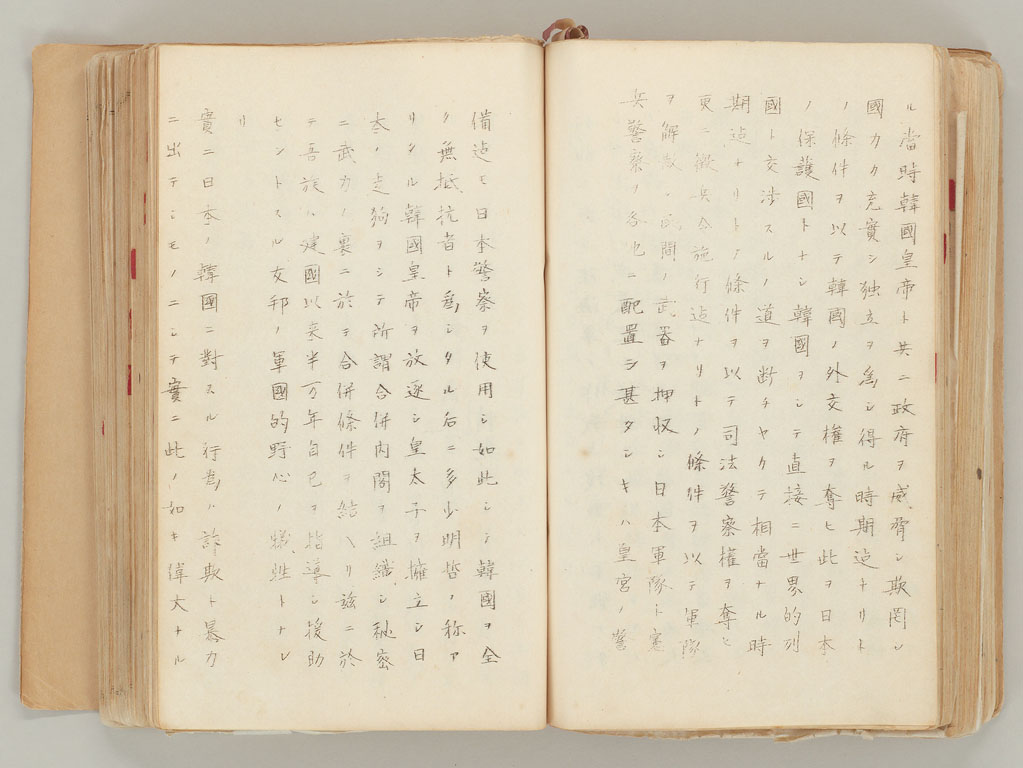 ル當時韓國皇帝ト共ニ政府ヲ威脅シ欺罔シ
國力カ充實シ独立ヲ為シ得ル時期迠トリト
ノ條件ヲ以テ韓國ノ外交權ヲ奪ヒ此ヲ日本
ノ保護國トナシ韓國ヲシテ直接ニ世界的列
國ト交渉スルノ道ヲ断チヤクテ相當ナル時
期迠ナリトノ條件ヲ以テ司法警察權ヲ奪ヒ
更ニ徴兵令施行迠ナリトノ條件ヲ以テ軍隊
ヲ解散シ民間ノ武器ヲ押収シ日本軍隊ト憲
兵警察ノ各地ニ配置シ甚タシキハ皇宮ノ警
備迠モ日本警察ヲ使用シ如此シシ韓國ヲ全
ク無抵抗者ト爲シタル后ニ多少明哲ノ称ア
リシル韓國皇帝ヲ放逐シ皇太子ヲ擁立シ日
本ノ走狗ヲシテ所謂合併内閣ヲ組織シ秘密
ニ武力ノ裏ニ於テ合併條件ヲ結ヘリ玆ニ於
テ吾族ハ建國以来半万年自己ヲ指導シ援助
セントスル友邦ノ軍國的野心ノ犠牲トナレ
リ
實ニ日本ノ韓國ニ對スル行爲ハ詐欺ト暴力
ニ出テシモノニシテ實ニ此ノ如キ偉大トル